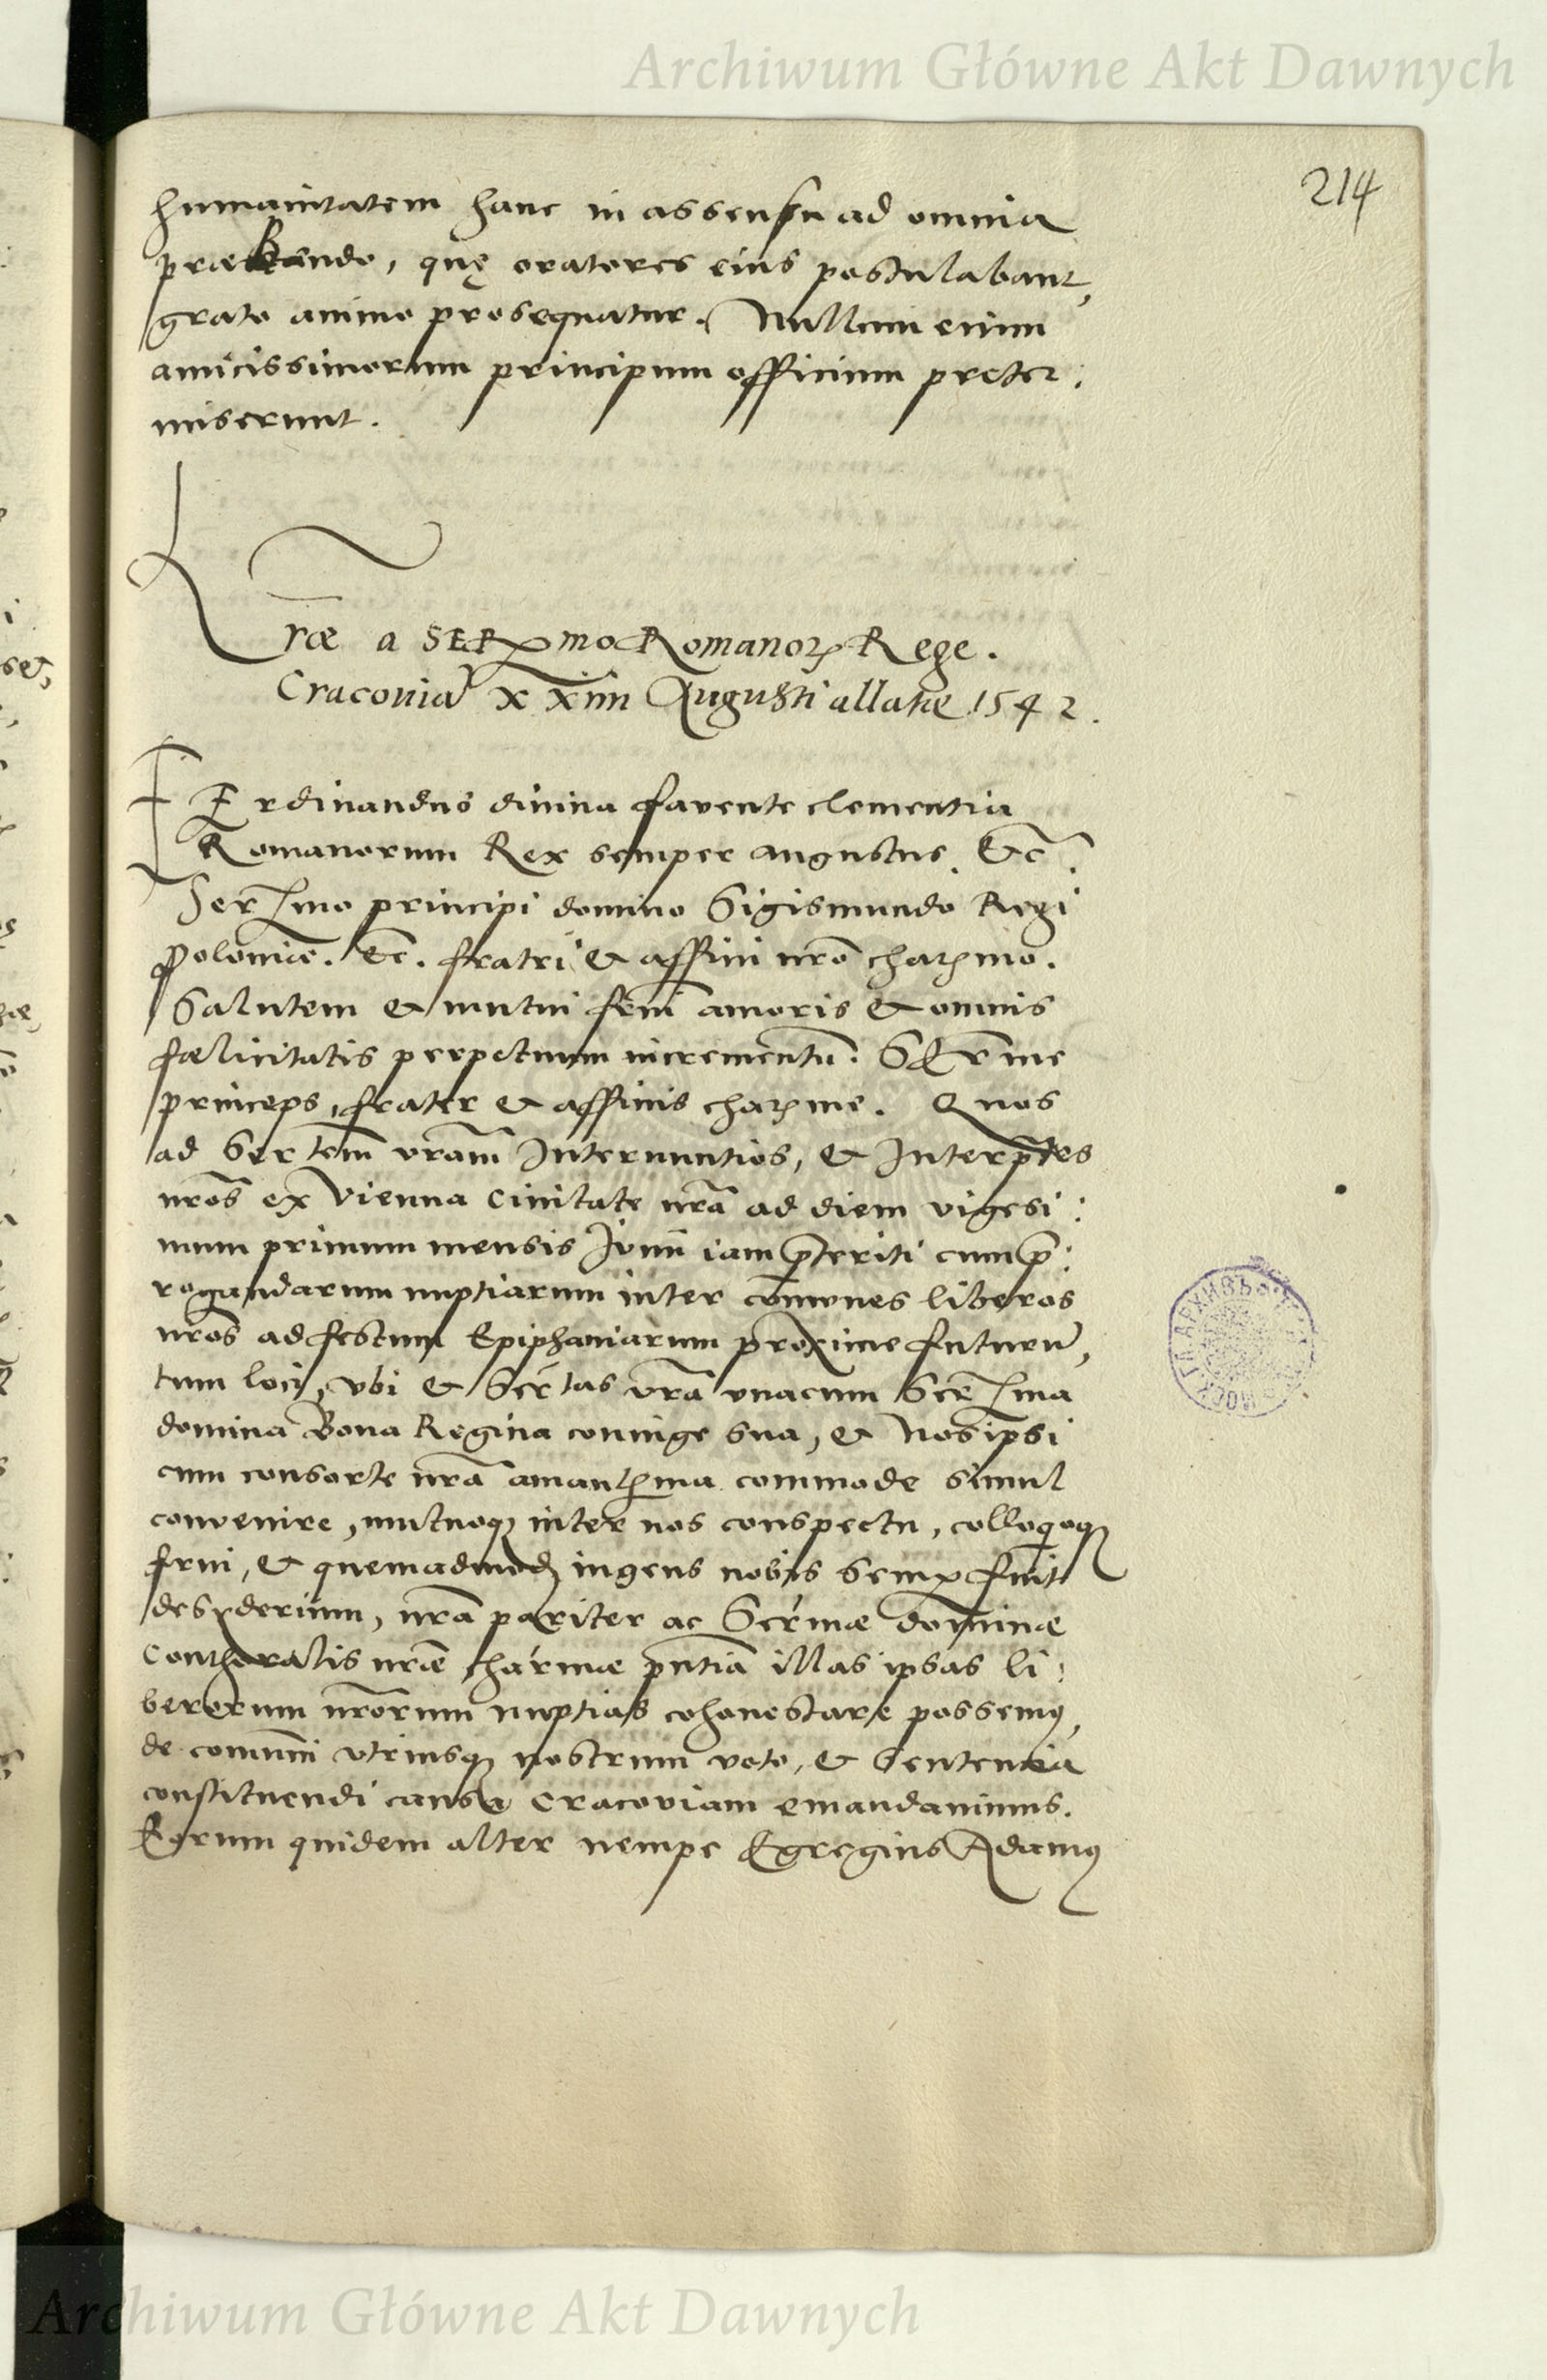 Archiwum Główne Akt Dawnych
214
humanitatem hanc in assensu ad omnia
præbendo, quę oratores eius postulabant,
grato animo prosequatur. Nullum enim
amicissimorum principum officium preter:
miserunt.
Lræ a SERmo Romanoꝝ Rege.
Cracoviā XXiiii Augusti allatæ 1542.
Ferdinandus divina favente clementia
Romanorum Rex semper augustus. &c̄.
Serᵐᵒ principi domino Sigismundo Regi
Poloniæ. &c̄. fratri & affini nr̄o chaꝝmo.
Salutem & mutui fr̄ni amoris & omnis
fælicitatis perpetuum incrementū. Ser̄me
princeps, frater & affinis chaꝝme. Quos
ad Sertem̄ vr̄am Internuntios, & Interpr̄tes
nr̄os ex Vienna Civitate nr̄a ad diem vigesi:
mum primum mensis Junii iam p̄teriti cum p̄:
rogandarum nuptiarum inter com̄unes liberos
nr̄os ad festum Epiphaniarum proxime futurū,
tum loci, vbi & Ser̄tas vr̄a vnacum Ser̄ma
domina Bona Regina coniuge sua, & Nos ipsi
cum consorte nr̄a amantꝭma commode simul
convenire, mutuoqꝫ inter nos conspectu, colloqoqꝫ
frui, & quemadmodꝫ ingens nobis semꝑ fuit
desyderium, nr̄a pariter ac Ser̄mæ dominæ
Conthoralis nr̄æ char̄mæ pn̄tia illas ipsas li:
berorum nr̄orum nuptias cohonestare possemꝰ,
de com̄uni vtriusqꝫ nostrum voto, & sententia
constituendi causa Cracoviam emandavimus.
Eorum quidem alter nempe Egregius Adamꝰ
Archiwum Główne Akt Dawnych